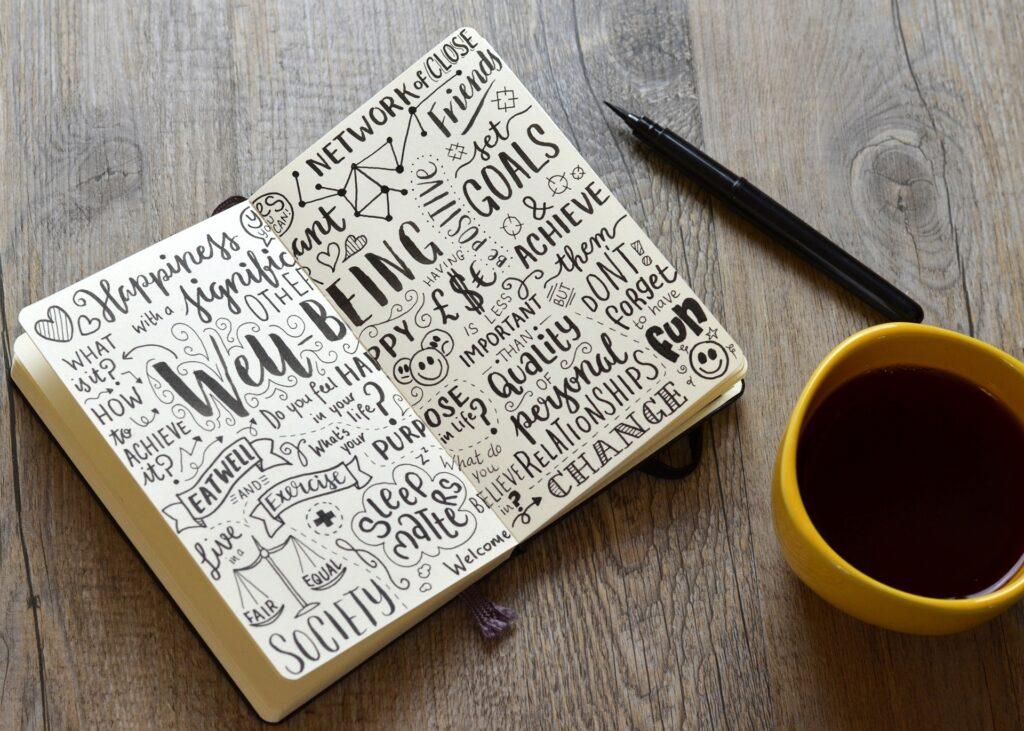 NETWORK of CLOSE
Friends
yes
YOU
CAN!
Happiness
with a significant
OTHER
WHAT
is it?
HOW
to
ACHIEVE
it?
Well-BEING
Do you feel HAPPY
in your
life?
EAT WELL
AND
Exercise
What's
your
PURPOSE
in life?
zzz
Sleep
matters
Live
in a
FAIR
EQUAL
SOCIETY
Welcome
CHANGE
What do
you
BELIEVE
in?
BE POSITIVE
set
GOALS
&
ACHIEVE
them
HAVING
£$€
IS LESS
IMPORTANT
THAN
Quality
OF
personal
RELATIONSHIPS
BUT
DON'T
forget
to have
fun